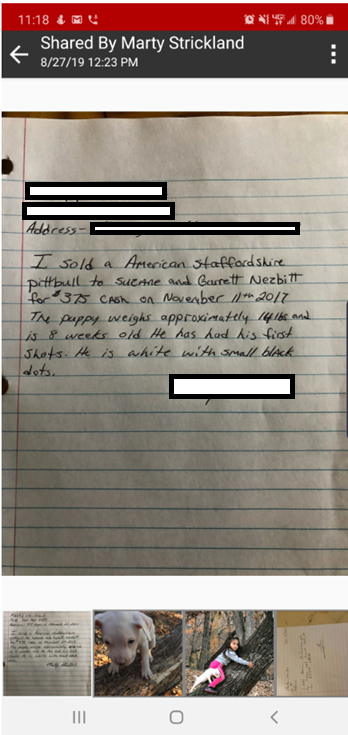 11:18 80%
Shared By Marty Strickland
8/27/19 12:23 PM
Address-
I sold a American Staffordshire
pittbull to Sueanne and Garrett Nezbitt
for $375 cash on November 11th 2017
The puppy weighs approximately 14 lbs and
is 8 weeks old He has had his first
shots. He is white with small black
dots.